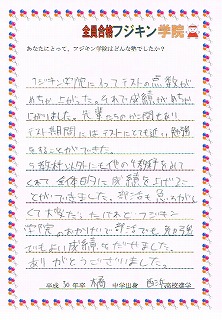 全員合格フジキン学院
あなたにとって、フジキン学院はどんな塾でしたか?
フジキン学院に入ってテストの点数が
めちゃ上がった。それで成績がめちゃ
上がりました。先輩たちの
テスト期間にはテストにとても 勉強
をすることができた。
5教科以外にも他の教科をみて
くれて全体的に成績を上げるこ
とができました。部活も
くて大変でしたけれどフジキン
学院のおかげで部活でも、勉強
でもよい成績をだせました。
ありがとうございました。
平成30年卒 橘 中学出身 高校進学